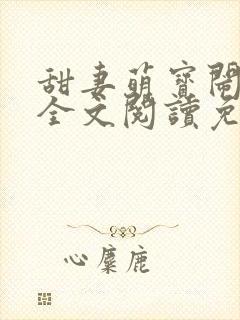 甜妻萌寶鬧
全文閱讀免
心麋鹿